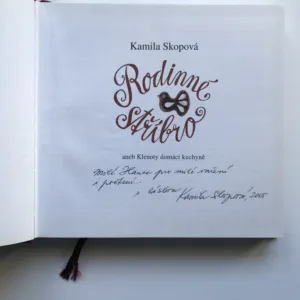 Kamila Skopová
Rodinné
stříbro
aneb Klenoty domácí kuchyně
Milé Hance pro milé vaření
i počtení...
s láskou Kamila Skopová, 2005